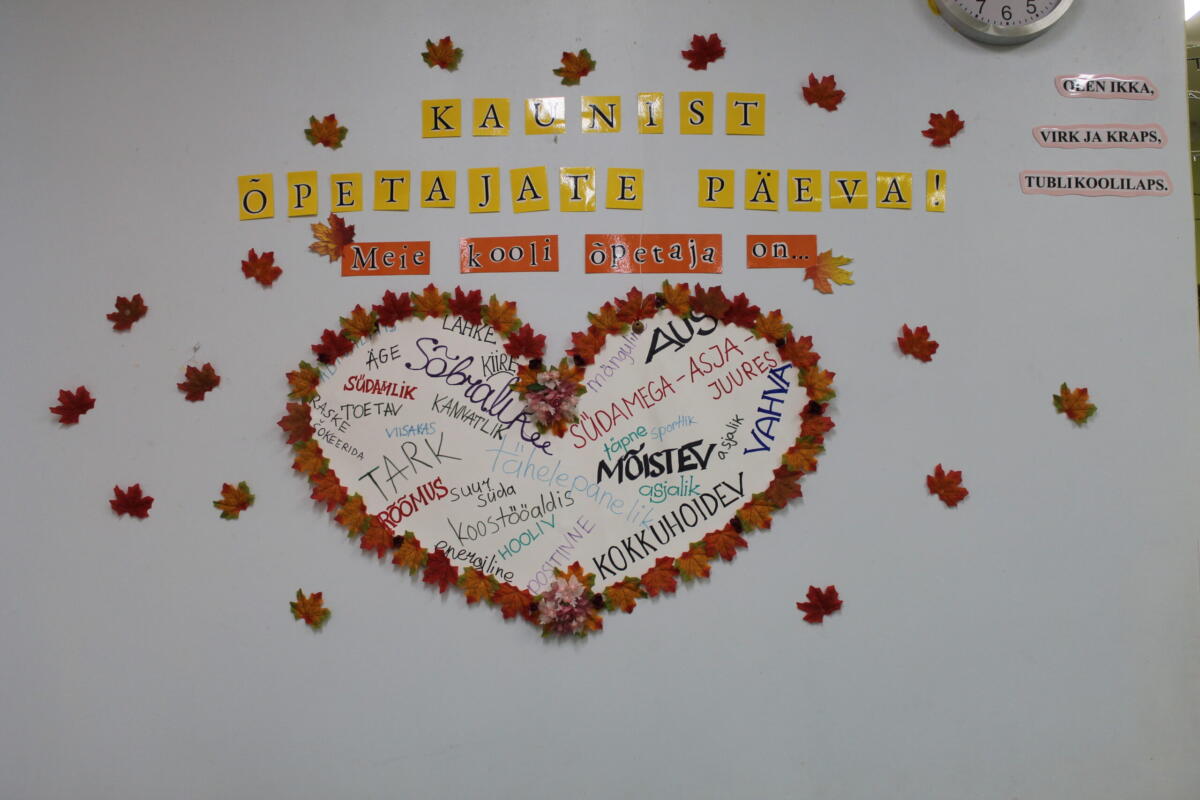 7 6 5
KAUNIST
ÕPETAJATE PÄEVA!
Meie kooli õpetaja on...
OLEN IKKA,
VIRK JA KRAPS,
TUBLI KOOLILAPS.
LAHKE
ÄGE
KIIRE
Sõbralikku
SÜDAMLIK
RASKE
TOETAV
KANNATLIK
VIISAKAS
TARK
tähelepanelik
RÕÕMUS
suur
süda
koostööaldis
HOOLIV
energiline
POSITIIVNE
mänguline
AUS
SÜDAMEGA-ASJA-
JUURES
täpne
sportlik
asjalik
VAHVA
MÕISTEV
asjalik
KOKKUHOIDEV